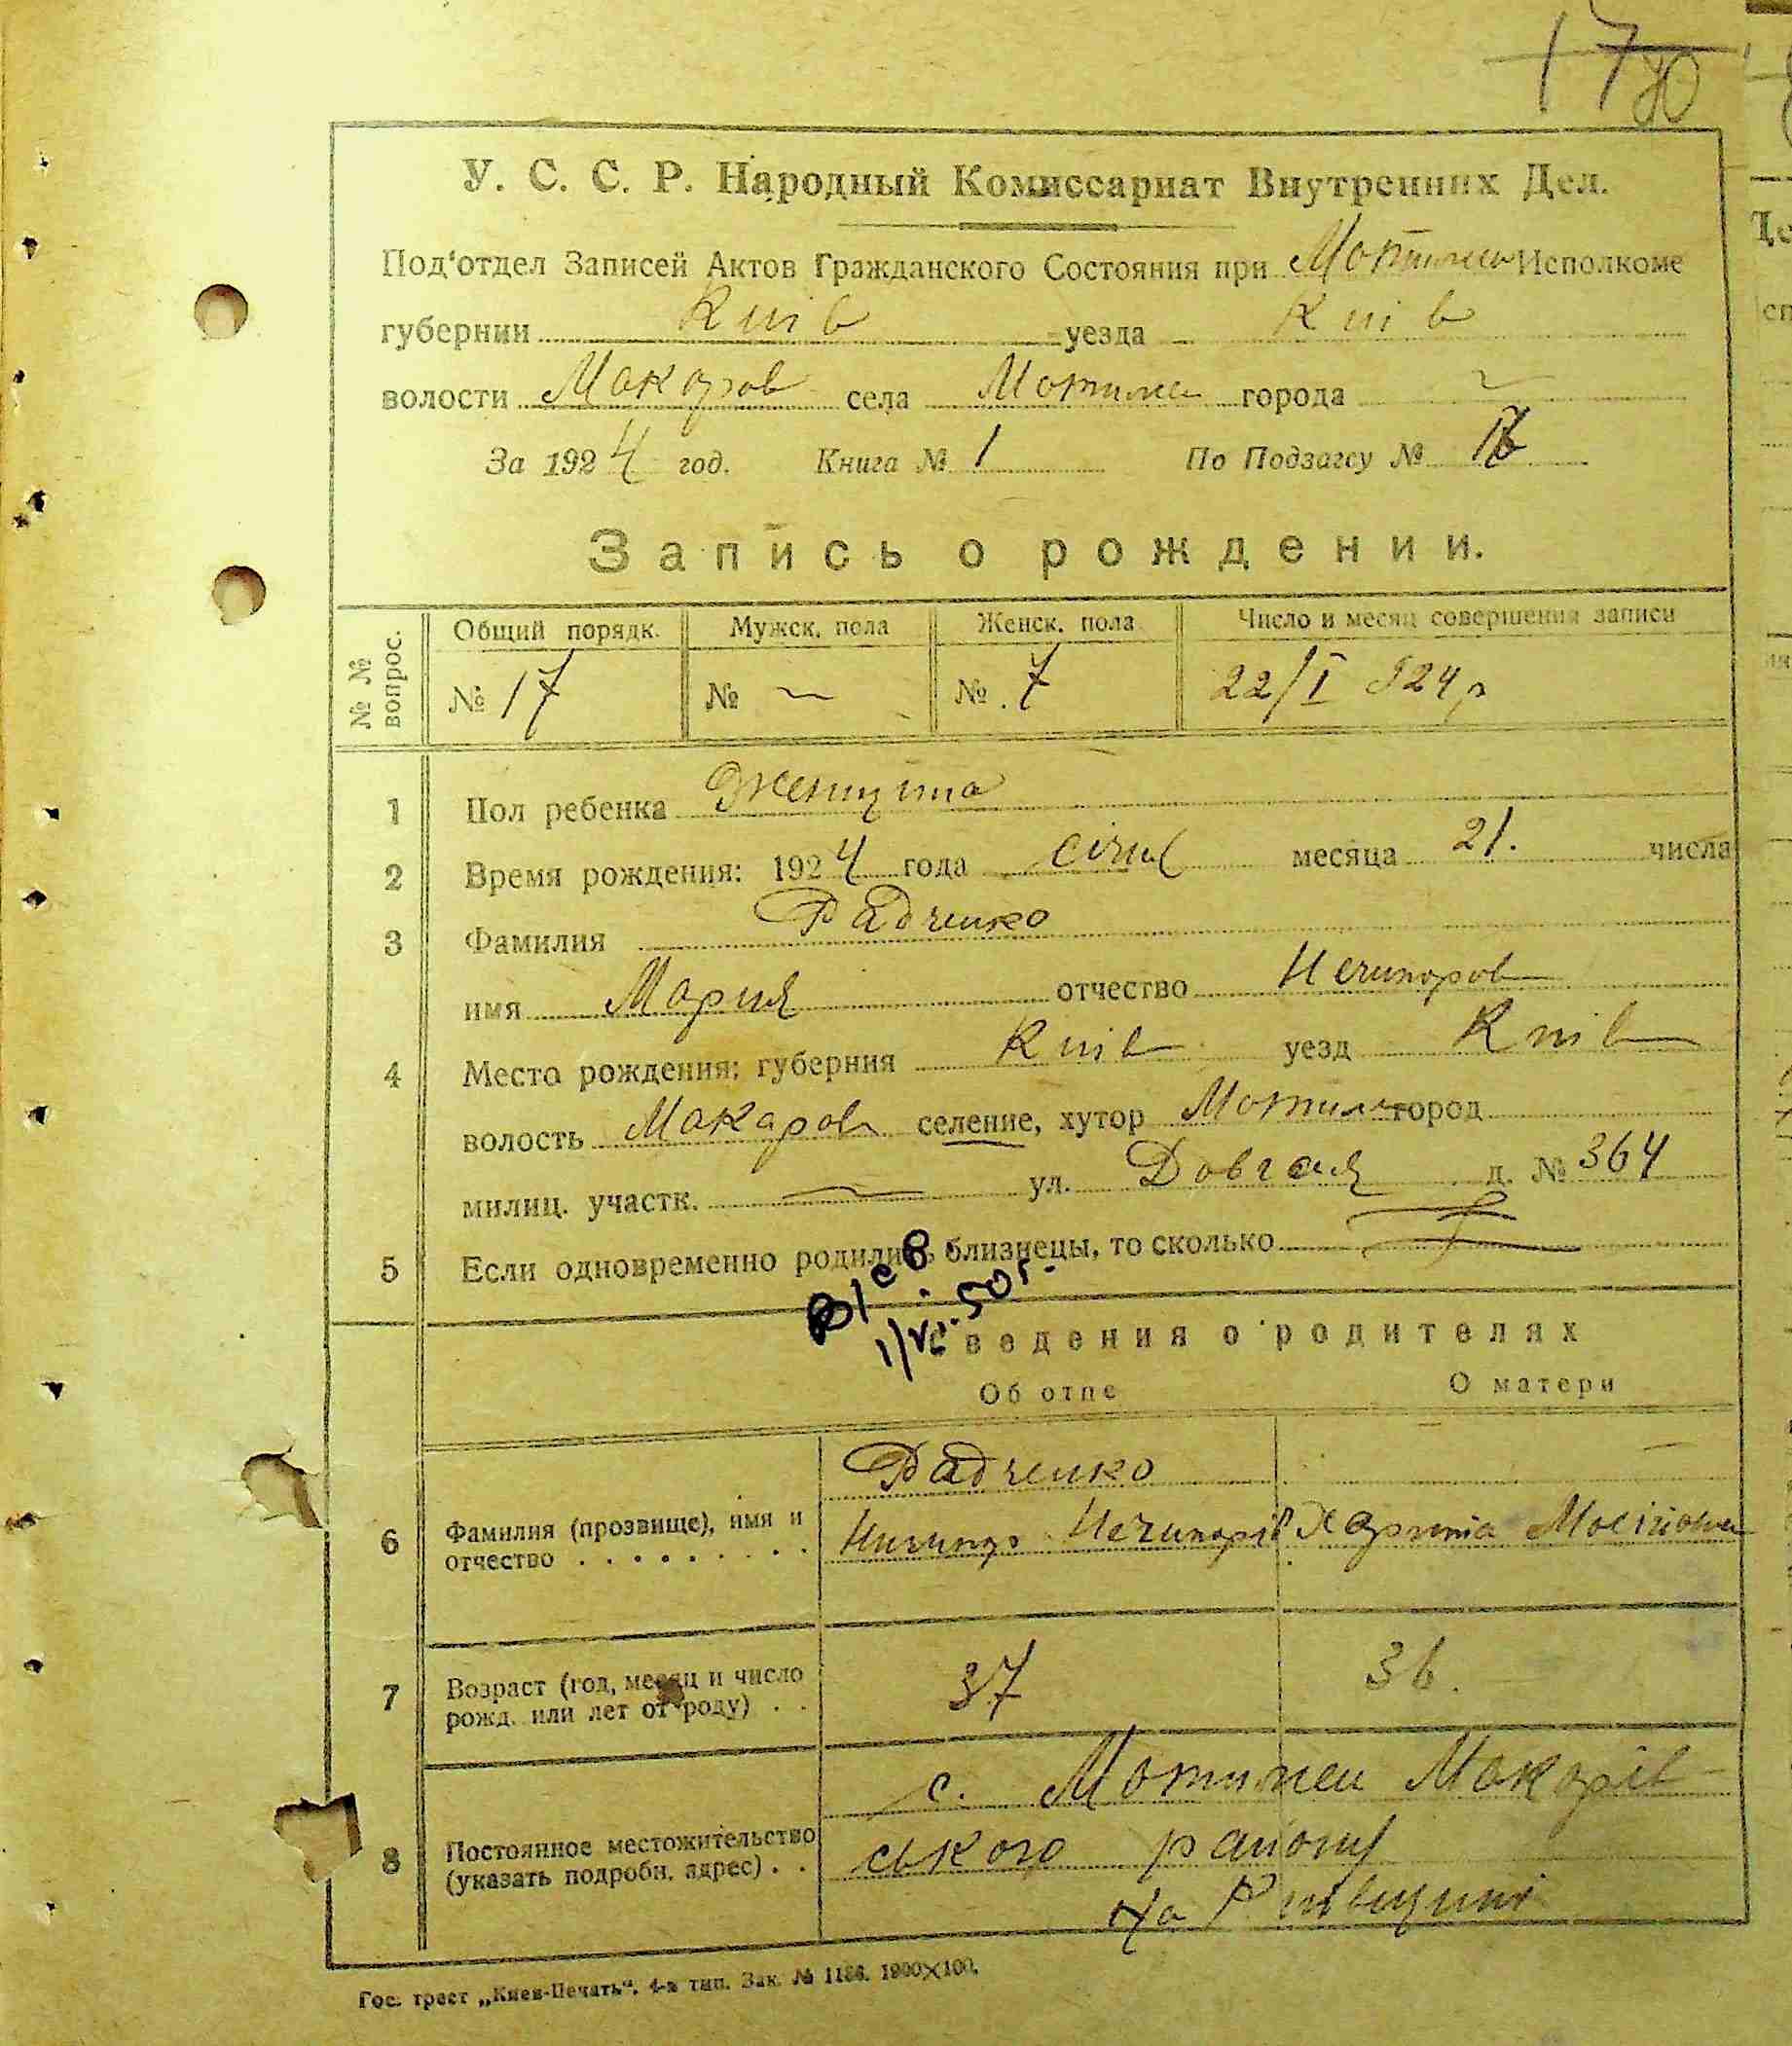 17
У. С. С. Р. Народный Комиссариат Внутренних Дел.
Под'отдел Записей Актов Гражданского Состояния при Мотижин Исполкоме
губернии Київ уезда Київ
волости Макаров села Мотижин города
За 1924 год. Книга № 1 По Подзагсу №
Запись о рождении.
№ № вопрос. Общий порядк. Мужск. пола Женск. пола Число и месяц совершения записи
№ 17 № — № 7 22/I 924 р
1 Пол ребенка Женщина
2 Время рождения: 1924 года січня месяца 21. числа
3 Фамилия Радченко
имя Мария отчество Нечипоров
4 Место рождения: губерния Київ уезд Київ
волость Макаров селение, хутор Мотижин город
милиц. участк. — ул. Довгая д. № 364
5 Если одновременно родились близнецы, то сколько
1/VI. 50 г.
Сведения о родителях
Об отце О матери
Радченко
6 Фамилия (прозвище), имя и отчество Нечипорів
7 Возраст (год, месяц и число рожд. или лет от роду) 37 36.
с. Мотижин Макарів-
8 Постоянное местожительство (указать подробн. адрес) ського району
на Київщині
Гос. трест „Киев-Печать“. 4-я тип. Зак. № 1186. 1900×100.